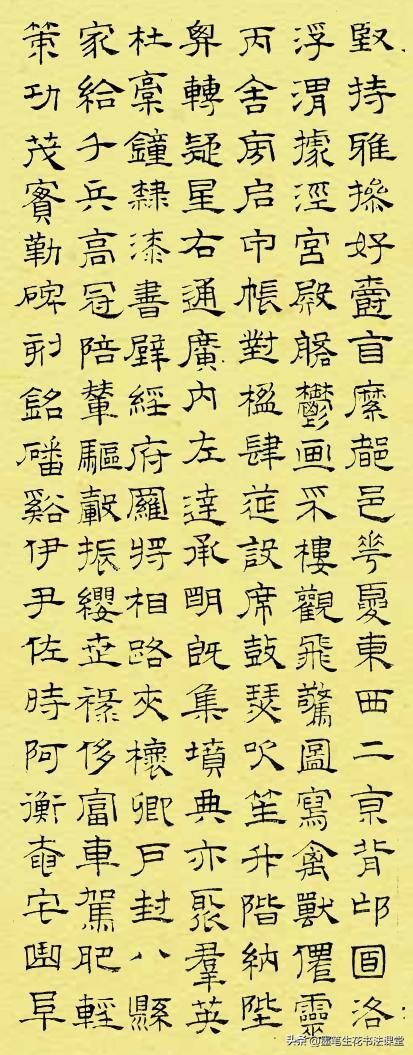 堅持雅操好爵自縻都邑華夏東西二京背邙面洛
浮渭據涇宮殿盤鬱画采樓觀飛驚圖寫禽獸僊靈
丙舍旁启甲帳對楹肆筵設席鼓瑟吹笙升階納陛
弁轉疑星右通廣內左達承明既集墳典亦聚羣英
杜稾鐘隸漆書壁經府羅將相路夾槐卿戶封八縣
家給千兵高冠陪輦驅轂振纓世祿侈富車駕肥輕
策功茂實勒碑刻銘磻谿伊尹佐時阿衡奄宅曲阜
头条 @笔生花书法课堂